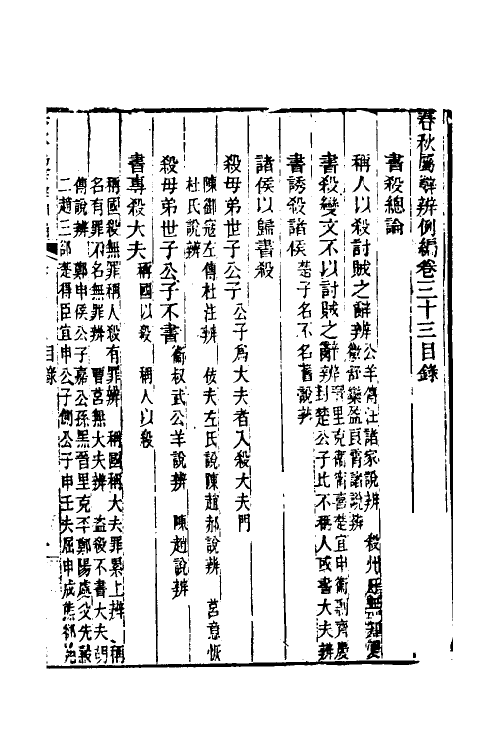 春秋屬辭辨例編卷三十三目錄
書殺總論
稱人以殺討賊之辭辨
公羊傳注諸家說辨
殺州吁無知夏
徵舒欒盈良霄諸說辨
書殺變文不以討賊之辭辨
晉里克衛甯喜楚宜申衛剽齊慶
封楚公子比不稱人或書大夫辨
書誘殺諸侯
楚子名不名舊說辨
諸侯以歸書殺
殺母弟世子公子例
公子為大夫者入殺大夫門
陳御寇左傳杜注辨
佞夫左氏說陳趙郝說辨
莒意恢
杜氏說辨
殺母弟世子公子不書
衛叔武公羊說辨
陳趙說辨
書專殺大夫
稱國以殺
稱人以殺
稱國殺無罪稱人殺有罪辨
稱國稱大夫罪累上辨
稱
名有罪不名無罪辨
曹莒無大夫辨
盜殺不書大夫胡
傳說辨
鄭申侯公子嘉公孫黑晉里克㔻鄭陽處父先縠
二趙三郤楚得臣宜申公子側公子申壬夫屈申成熊郤宛
目錄